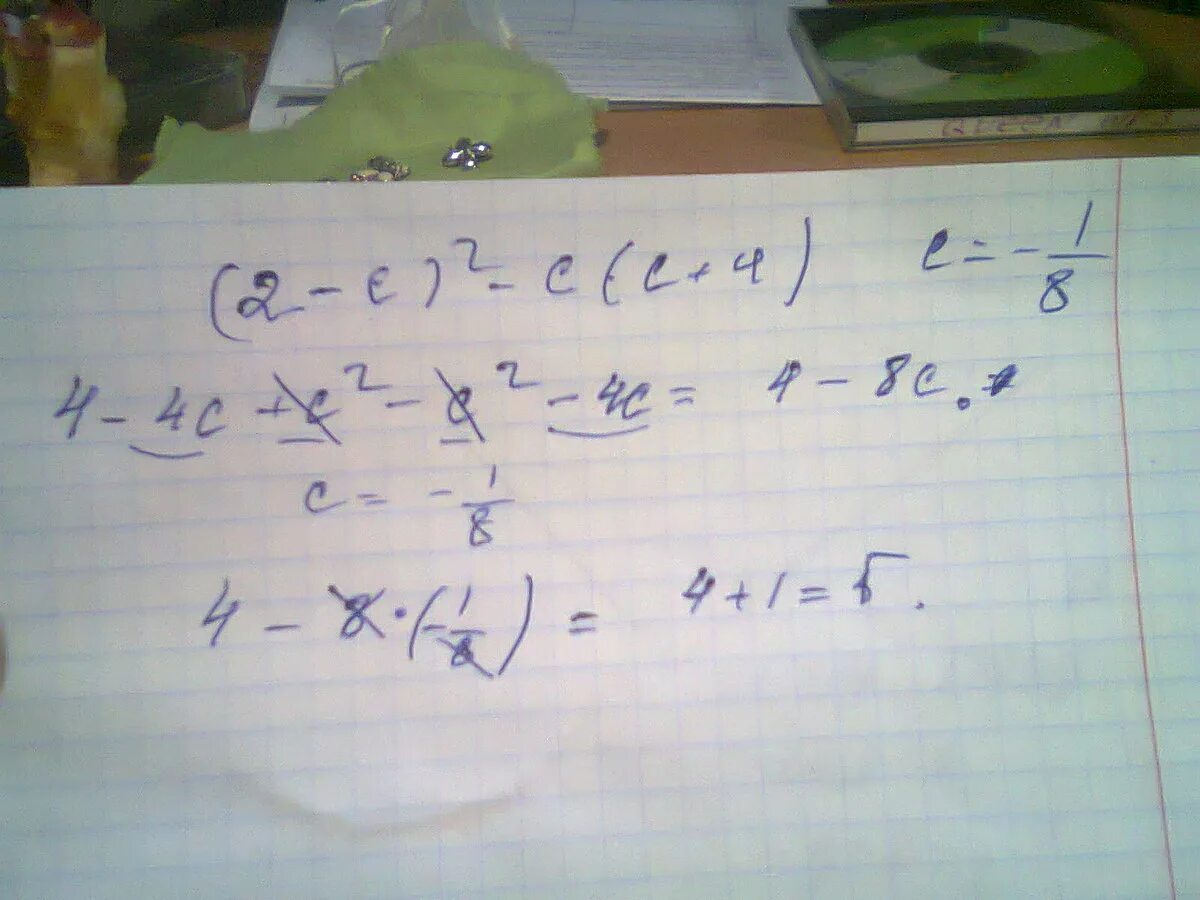 QUEEN
(2 - c)² - c (c + 4) c = - 1/8
4 - 4c + c² - c² - 4c = 4 - 8c.
c = - 1/8
4 - 8 · (- 1/8) = 4 + 1 = 5.